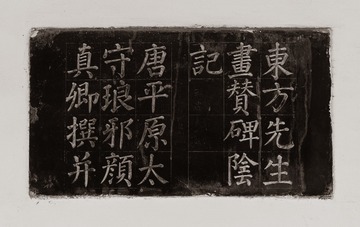 東方先生
畫贊碑陰
記
唐平原太
守琅邪顔
真卿撰并